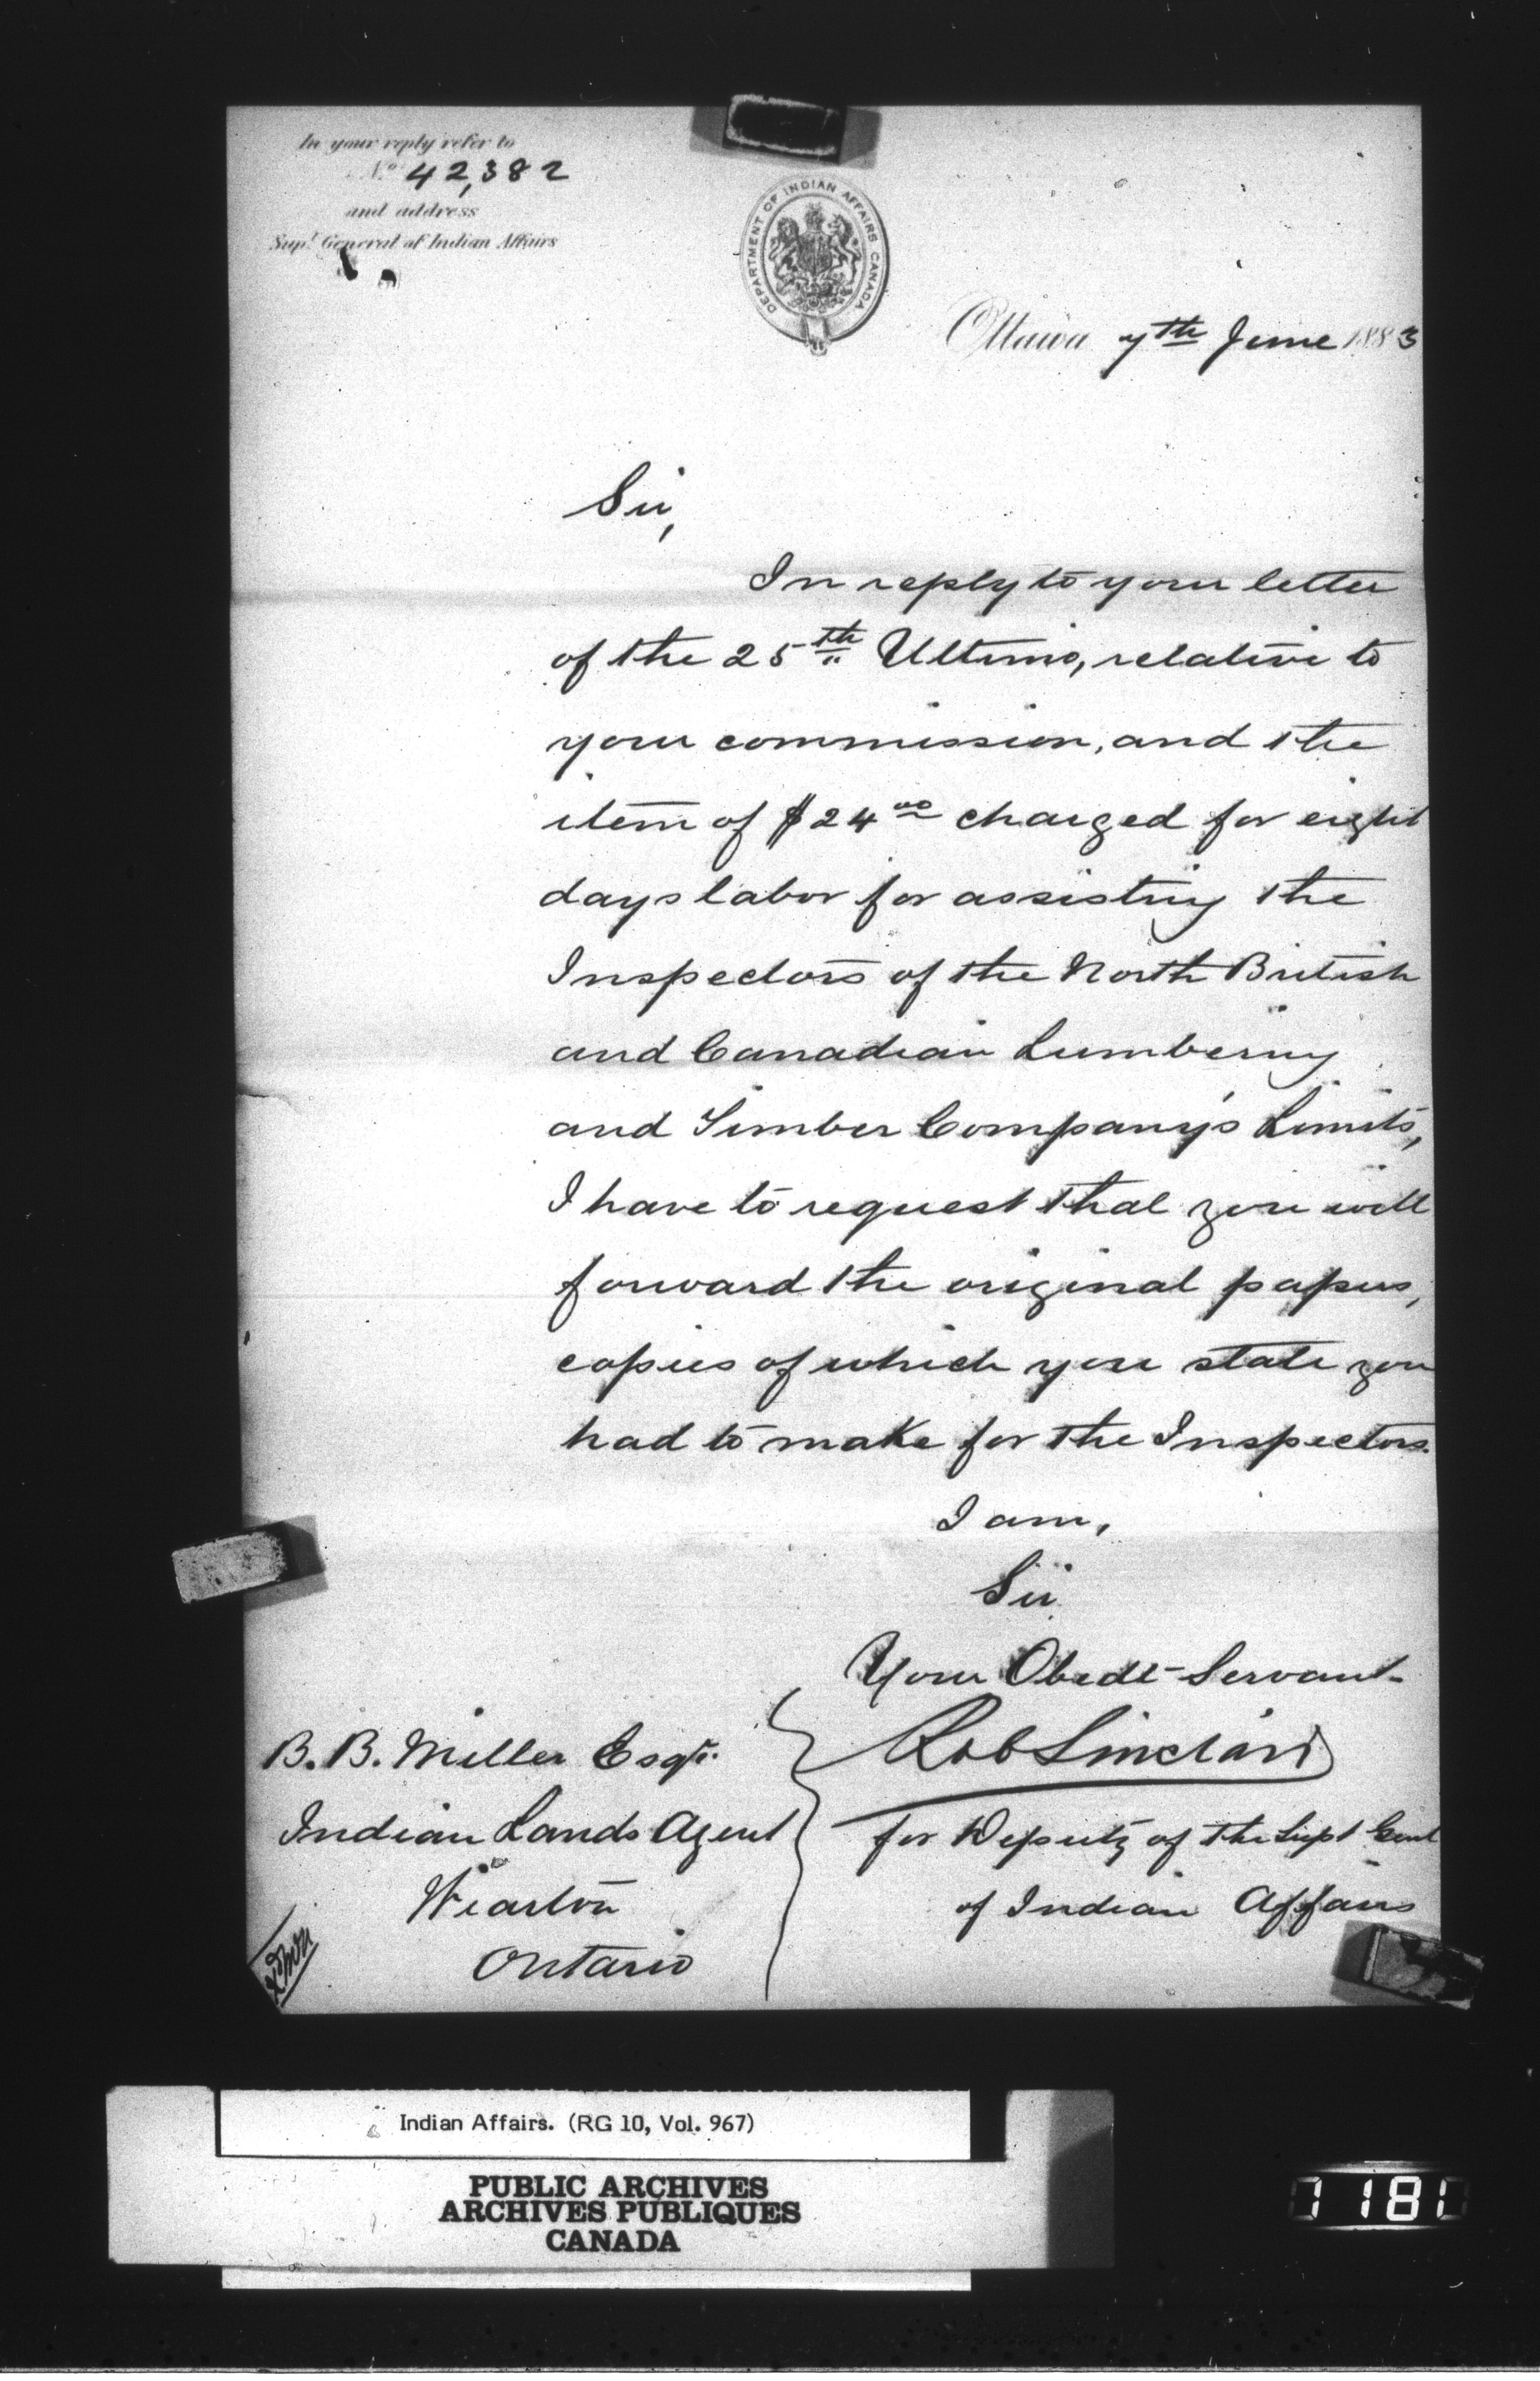 In your reply refer to
No. 42,382
and address
Supt. General of Indian Affairs
DEPARTMENT OF INDIAN AFFAIRS CANADA
Ottawa 7th June 1883
Sir,
In reply to your letter
of the 25th Ultimo, relative to
your commission, and the
item of $24.00 charged for eight
days labor for assisting the
Inspectors of the North British
and Canadian Lumbering
and Timber Company's Limits,
I have to request that you will
forward the original papers,
copies of which you state you
had to make for the Inspectors.
I am,
Sir
Your Obedt Servant
Rob Sinclair
for Deputy of the Supt Genl
of Indian Affairs
B. B. Miller Esqr.
Indian Lands Agent
Wiarton
Ontario
Indian Affairs. (RG 10, Vol. 967)
PUBLIC ARCHIVES
ARCHIVES PUBLIQUES
CANADA
1181